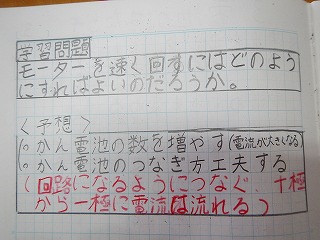 学習問題
モーターを速く回すにはどのよう
にすればよいのだろうか。
<予想>
○かん電池の数を増やす(電流が大きくなる
○かん電池のつなぎ方工夫する
(回路になるようにつなぐ、十極
から一極に電流は流れる)